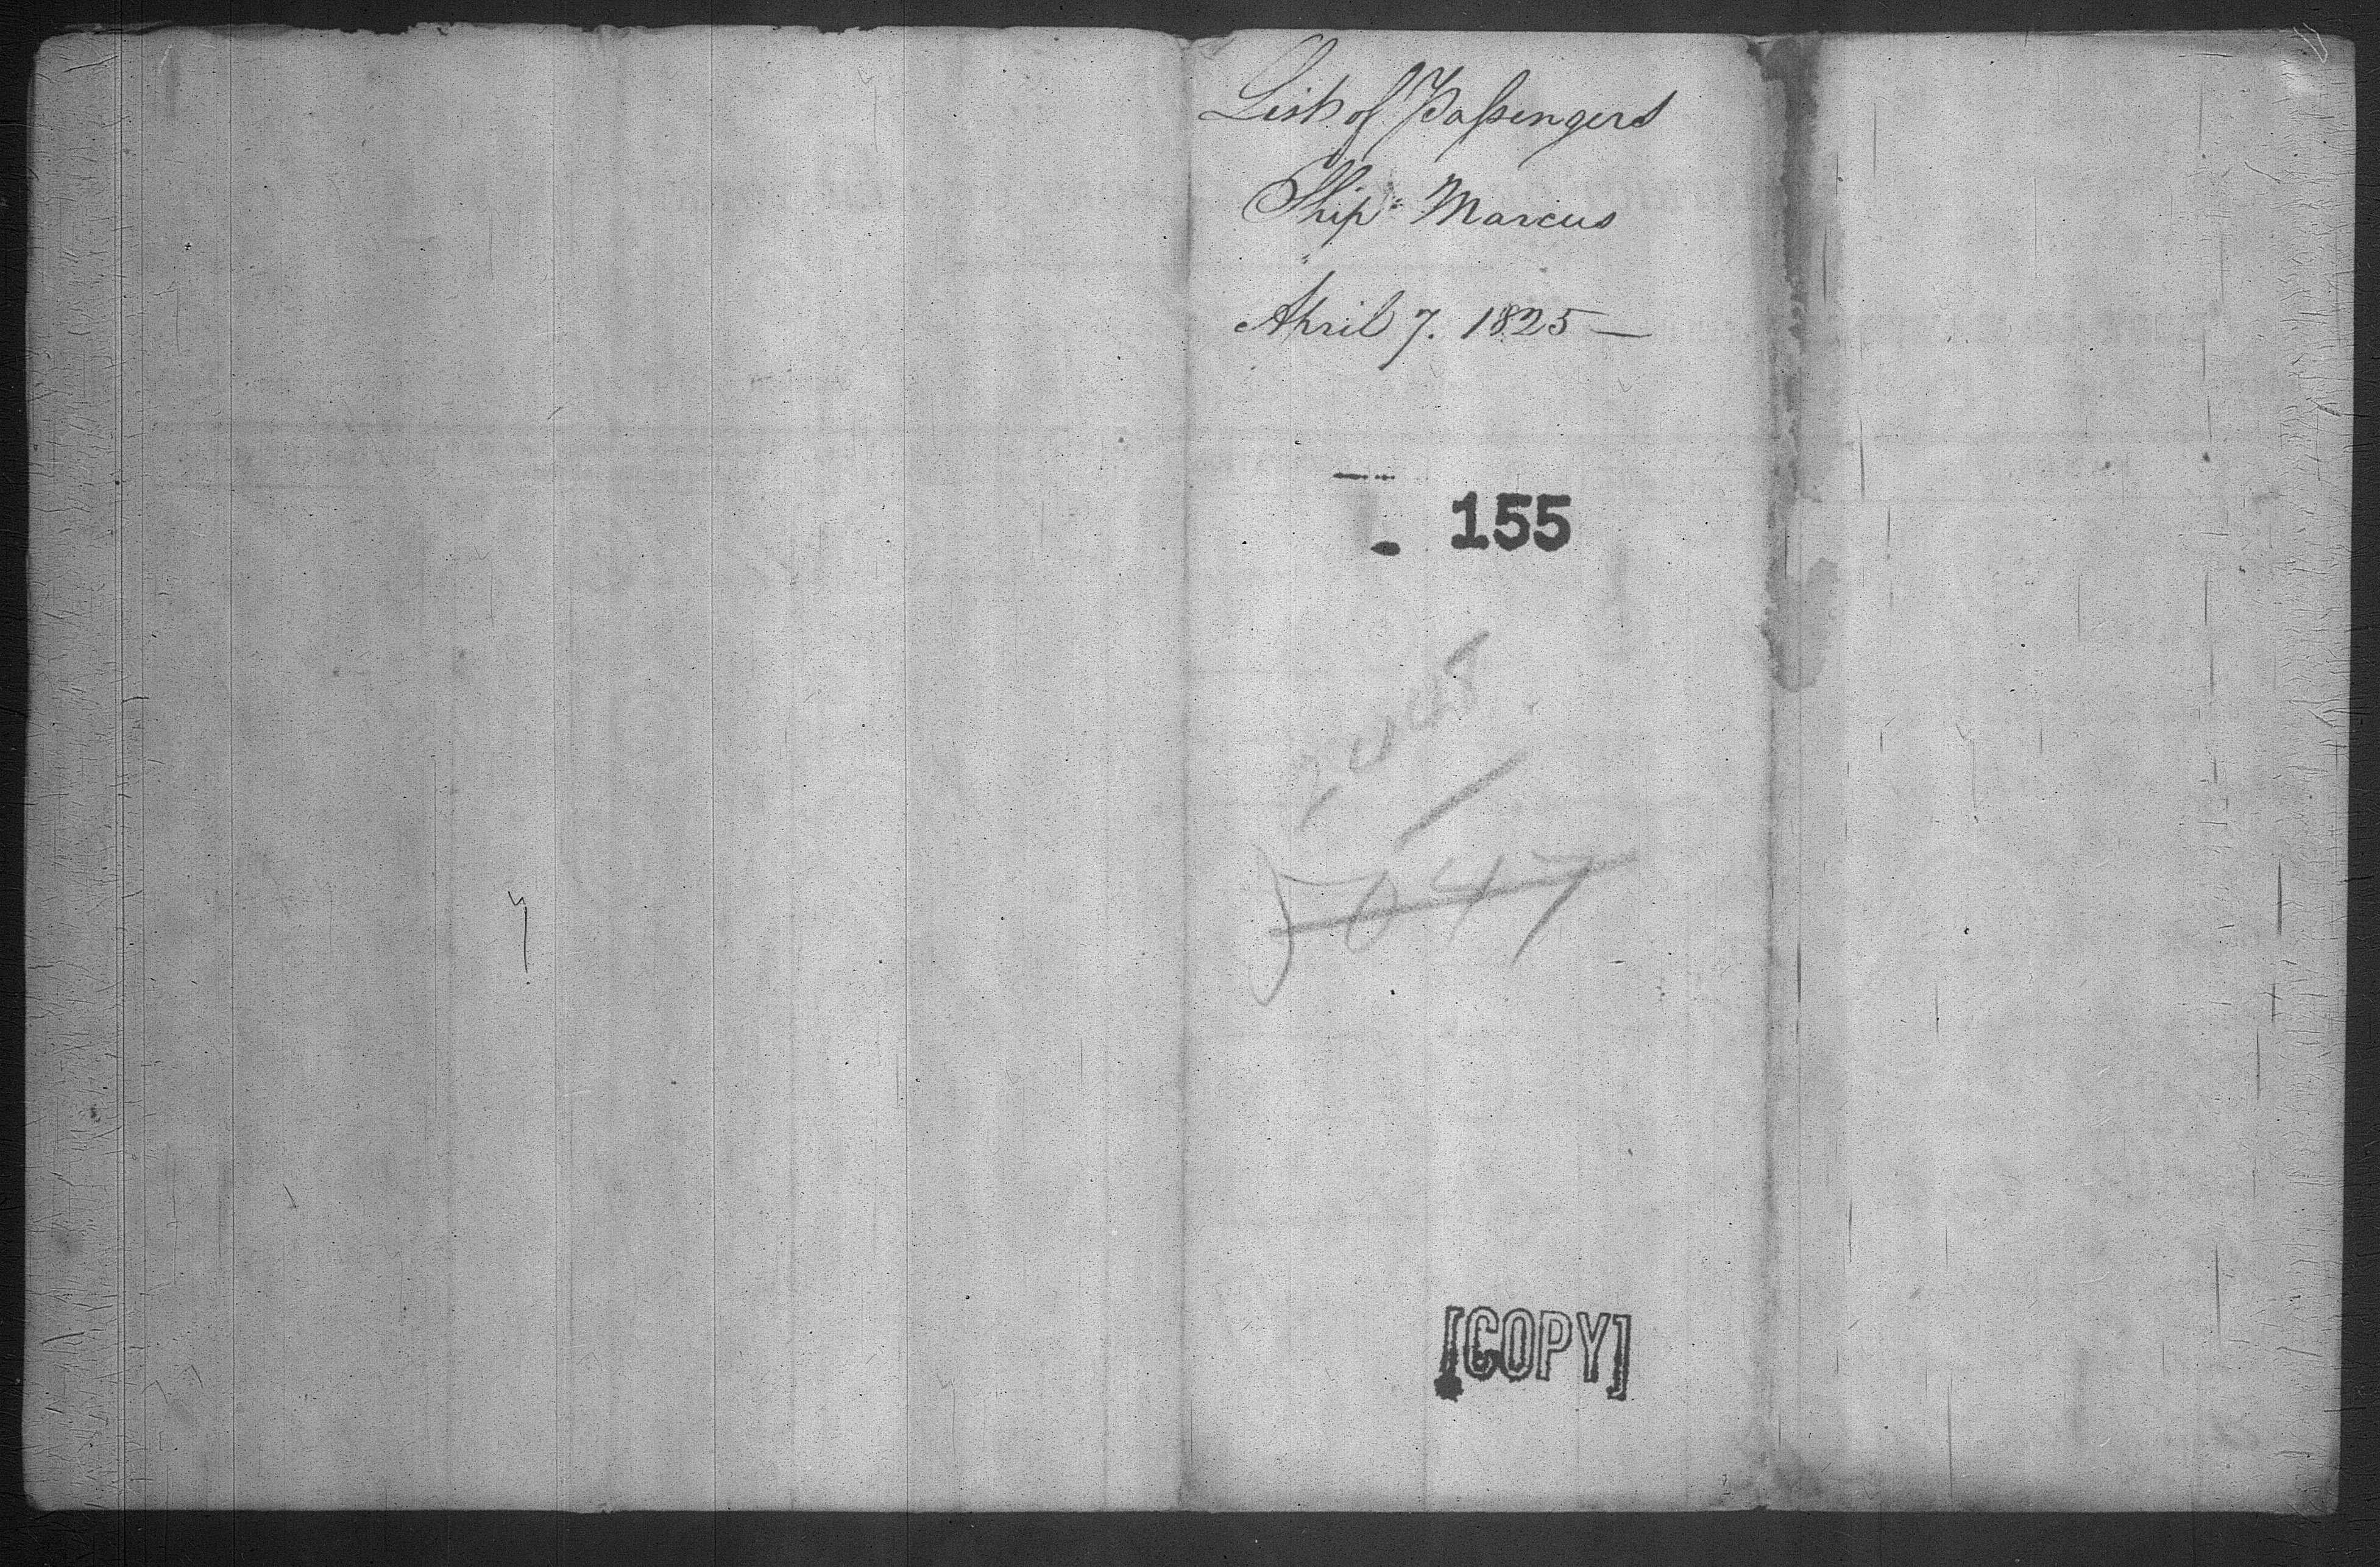 List of Passengers
Ship Marcus
April 7. 1825 —
155
5047
[COPY]